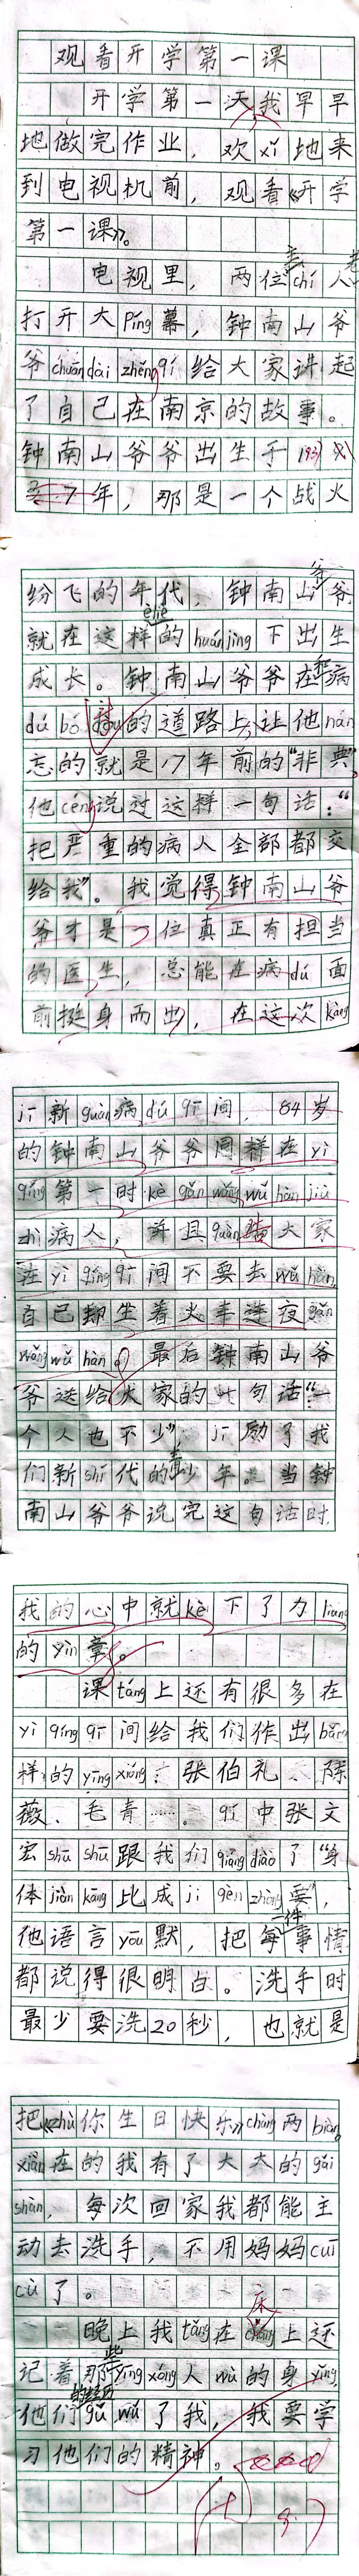 观看开学第一课
开学第一天我早早
地做完作业，欢xǐ地来
到电视机前，观看《开学
第一课》。
电视里，两位主chí人
打开大píng幕，钟南山爷
爷chuāndài zhěngqí给大家讲起
了自己在南京的故事。
钟南山爷爷出生于193
7年，那是一个战火
纷飞的年代，钟南山爷爷
就在这样的huánjìng下出生
成长。钟南山爷爷在和病
dú bó dòu的道路上，让他nán
忘的就是17年前的“非典”，
他céng说过这样一句话：“
把严重的病人全部都交
给我”。我觉得钟南山爷
爷才是一位真正有担当
的医生，总能在病dú面
前挺身而出，在这次kàng
jī新guān病dú qī间，84岁
的钟南山爷爷同样在yì
qíng第一时kè gǎn wǎng wǔ hàn jiù
zhì病人，并且quàn大家
在yì qíng qī间不要去wǔ hàn，
自己却坐着火车连夜gǎn
wǎng wǔ hàn。最后钟南山爷
爷送给大家的一句话“一
个人也不少”jī励了我
们新shí代的青少年。当钟
南山爷爷说完这句话时，
我的心中就kè下了力liàng
的yìn章。
课táng上还有很多在
yì qíng qī间给我们作出bǎng
样的yīng xióng：张伯礼、陈
薇、毛青……。qí中张文
宏shū shū跟我们qiáng diào了“身
体jiàn kāng比成jì gèng zhòng要”，
他语言yōu默，把每一件事情
都说得很明白。洗手时
最少要洗20秒，也就是
把《zhù你生日快乐》chàng两biàn，
xiàn在的我有了大大的gǎi
shàn，每次回家我都能主
动去洗手，不用妈妈cuī
cù了。
晚上我tǎng在床上还
记着那些yīng xióng人wù的身yǐng
他们的经历gǔ wǔ了我，我要学
习他们的精神。